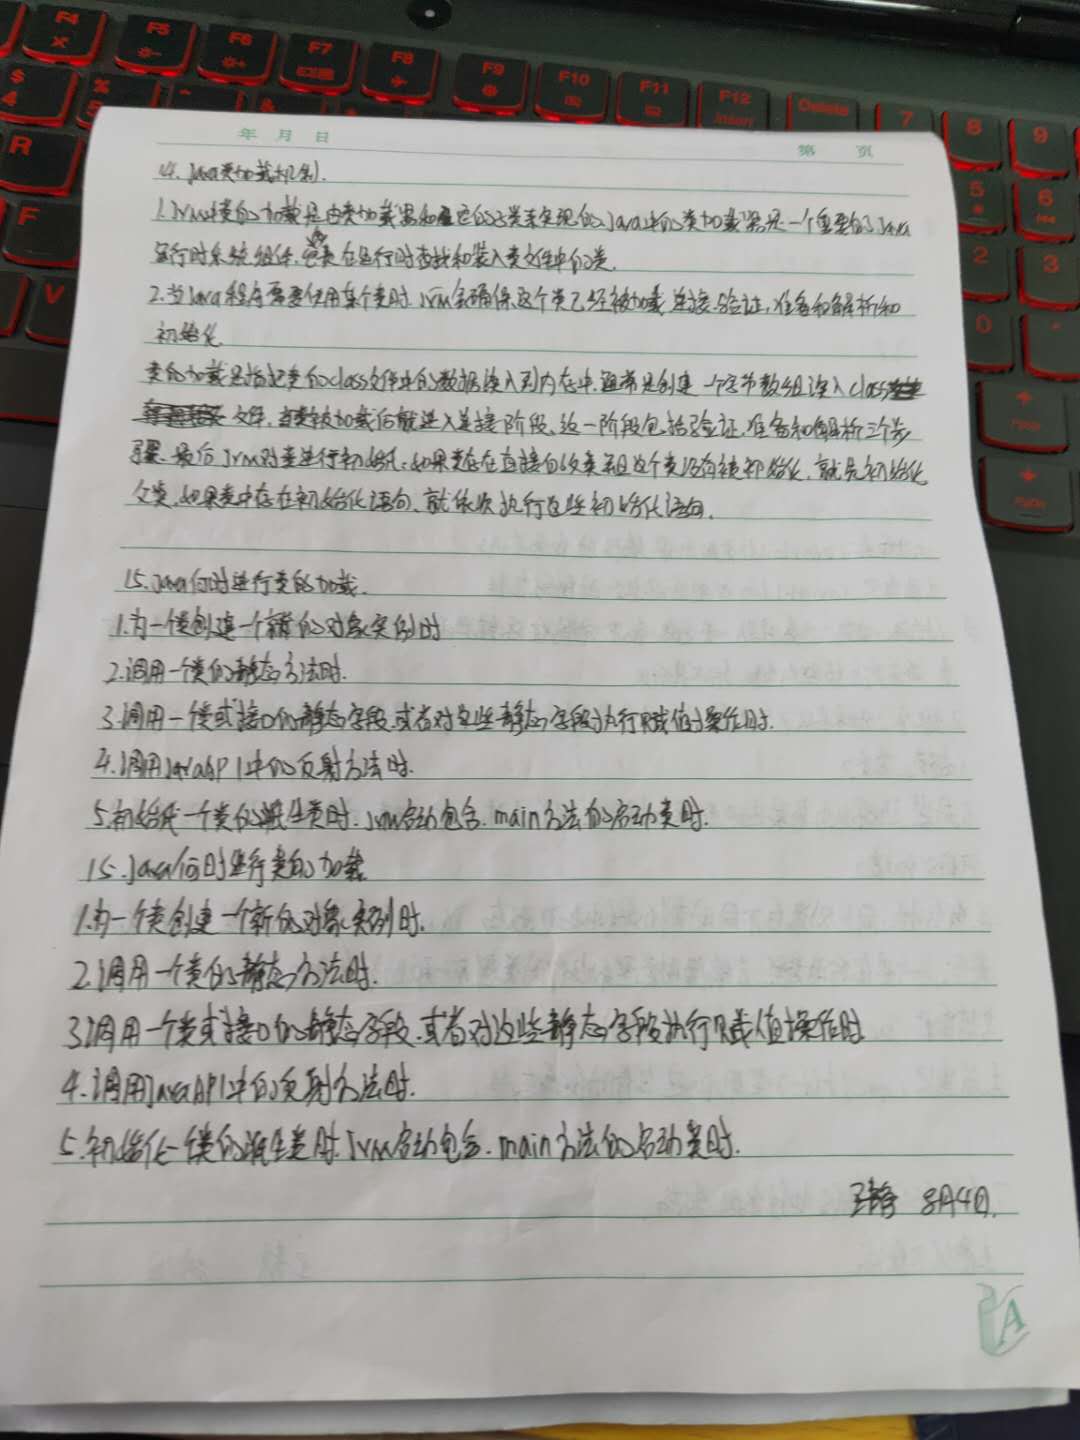 F4
F5
F6
F7
F8
F9
F10
F11
F12
Insert
Delete
7
8
9
$
4
%
5
R
F
V
5
6
2
3
0
年 月 日
第 页
14. Java类加载机制.
1.Jvm中类的加载是由类加载器和它的子类来实现的,Java中的类加载器是一个重要的Java
运行时系统组件,它负责在运行时查找和装入类文件中的类.
2.当Java程序需要使用某个类时,Jvm会确保这个类已经被加载,连接,验证,准备和解析和
初始化.
类的加载是指把类的class文件中的数据读入到内存中,通常是创建一个字节数组读入class
文件,当类被加载后就进入连接阶段,这一阶段包括验证,准备和解析三个步
骤.最后Jvm对类进行初始化,如果类存在直接的父类并且这个类没有被初始化,就先初始化
父类,如果类中存在初始化语句,就依次执行这些初始化语句.
15.Java何时进行类的加载.
1.为一个类创建一个新的对象实例时
2.调用一个类的静态方法时.
3.调用一个类或接口的静态字段,或者对这些静态字段执行赋值操作时.
4.调用JavaAPI中的反射方法时.
5.初始化一个类的派生类时.Jvm启动包含.main方法的启动类时.
15.Java何时进行类的加载
1.为一个类创建一个新的对象实例时.
2.调用一个类的静态方法时.
3.调用一个类或接口的静态字段.或者对这些静态字段执行赋值操作时
4.调用JavaAPI中的反射方法时.
5.初始化一个类的派生类时.Jvm启动包含.main方法的启动类时.
8月4日.
A